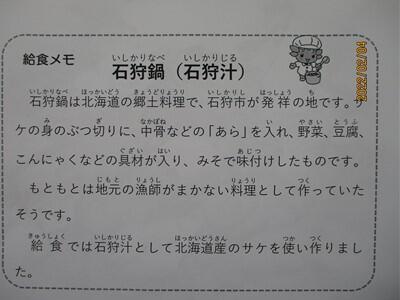 給食メモ
石狩鍋（石狩汁）
石狩鍋は北海道の郷土料理で、石狩市が発祥の地です。サ
ケの身のぶつ切りに、中骨などの「あら」を入れ、野菜、豆腐、
こんにゃくなどの具材が入り、みそで味付けしたものです。
もともとは地元の漁師がまかない料理として作っていた
そうです。
給食では石狩汁として北海道産のサケを使い作りまし
た。
2022/02/04